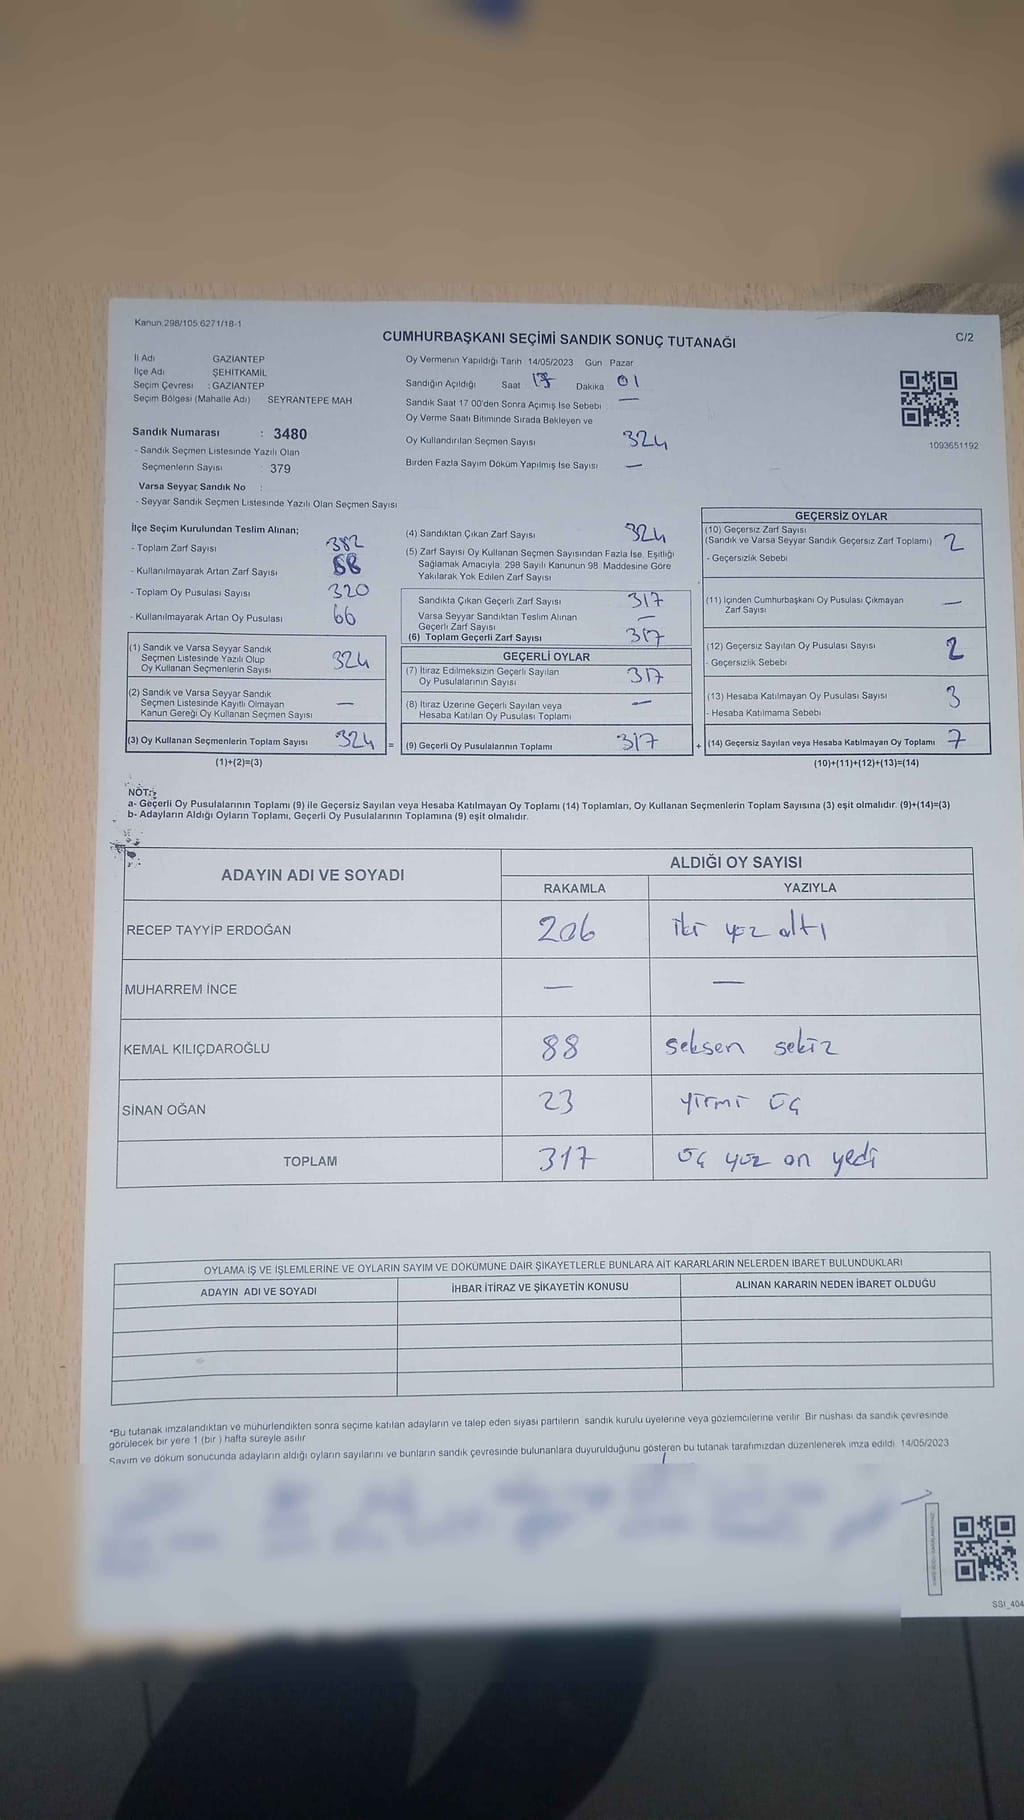 Kanun 298/105 6271/18-1
CUMHURBAŞKANI SEÇİMİ SANDIK SONUÇ TUTANAĞI
C/2
İl Adı GAZİANTEP
İlçe Adı ŞEHİTKAMİL
Seçim Çevresi : GAZİANTEP
Seçim Bölgesi (Mahalle Adı) SEYRANTEPE MAH
Sandık Numarası : 3480
- Sandık Seçmen Listesinde Yazılı Olan
Seçmenlerin Sayısı : 379
Varsa Seyyar Sandık No :
- Seyyar Sandık Seçmen Listesinde Yazılı Olan Seçmen Sayısı
Oy Vermenin Yapıldığı Tarih 14/05/2023 Gün Pazar
Sandığın Açıldığı Saat 17 Dakika 01
Sandık Saat 17.00'den Sonra Açımış İse Sebebi —
Oy Verme Saati Bitiminde Sırada Bekleyen ve
Oy Kullandırılan Seçmen Sayısı 324
Birden Fazla Sayım Döküm Yapılmış İse Sayısı —
1093651192
İlçe Seçim Kurulundan Teslim Alınan;
- Toplam Zarf Sayısı 382
- Kullanılmayarak Artan Zarf Sayısı
- Toplam Oy Pusulası Sayısı 320
- Kullanılmayarak Artan Oy Pusulası 66
(1) Sandık ve Varsa Seyyar Sandık
Seçmen Listesinde Yazılı Olup
Oy Kullanan Seçmenlerin Sayısı 324
(2) Sandık ve Varsa Seyyar Sandık
Seçmen Listesinde Kayıtlı Olmayan
Kanun Gereği Oy Kullanan Seçmen Sayısı —
(3) Oy Kullanan Seçmenlerin Toplam Sayısı 324 =
(1)+(2)=(3)
(4) Sandıktan Çıkan Zarf Sayısı 324
(5) Zarf Sayısı Oy Kullanan Seçmen Sayısından Fazla İse, Eşitliği
Sağlamak Amacıyla, 298 Sayılı Kanunun 98. Maddesine Göre
Yakılarak Yok Edilen Zarf Sayısı
Sandıkta Çıkan Geçerli Zarf Sayısı 317
Varsa Seyyar Sandıktan Teslim Alınan
Geçerli Zarf Sayısı —
(6) Toplam Geçerli Zarf Sayısı 317
GEÇERLİ OYLAR
(7) İtiraz Edilmeksizin Geçerli Sayılan
Oy Pusulalarının Sayısı 317
(8) İtiraz Üzerine Geçerli Sayılan veya
Hesaba Katılan Oy Pusulası Toplamı —
(9) Geçerli Oy Pusulalarının Toplamı 317 +
GEÇERSİZ OYLAR
(10) Geçersiz Zarf Sayısı
(Sandık ve Varsa Seyyar Sandık Geçersiz Zarf Toplamı) 2
- Geçersizlik Sebebi
(11) İçinden Cumhurbaşkanı Oy Pusulası Çıkmayan
Zarf Sayısı —
(12) Geçersiz Sayılan Oy Pusulası Sayısı 2
- Geçersizlik Sebebi
(13) Hesaba Katılmayan Oy Pusulası Sayısı 3
- Hesaba Katılmama Sebebi
(14) Geçersiz Sayılan veya Hesaba Katılmayan Oy Toplamı 7
(10)+(11)+(12)+(13)=(14)
NOT:
a- Geçerli Oy Pusulalarının Toplamı (9) ile Geçersiz Sayılan veya Hesaba Katılmayan Oy Toplamı (14) Toplamları, Oy Kullanan Seçmenlerin Toplam Sayısına (3) eşit olmalıdır. (9)+(14)=(3)
b- Adayların Aldığı Oyların Toplamı, Geçerli Oy Pusulalarının Toplamına (9) eşit olmalıdır.
ADAYIN ADI VE SOYADI ALDIĞI OY SAYISI
RAKAMLA YAZIYLA
RECEP TAYYİP ERDOĞAN 206 iki yüz altı
MUHARREM İNCE — —
KEMAL KILIÇDAROĞLU 88 seksen sekiz
SİNAN OĞAN 23 yirmi üç
TOPLAM 317 üç yüz on yedi
OYLAMA İŞ VE İŞLEMLERİNE VE OYLARIN SAYIM VE DÖKÜMÜNE DAİR ŞİKAYETLERLE BUNLARA AİT KARARLARIN NELERDEN İBARET BULUNDUKLARI
ADAYIN ADI VE SOYADI İHBAR İTİRAZ VE ŞİKAYETİN KONUSU ALINAN KARARIN NEDEN İBARET OLDUĞU
*Bu tutanak imzalandıktan ve mühürlendikten sonra seçime katılan adayların ve talep eden siyasi partilerin sandık kurulu üyelerine veya gözlemcilerine verilir. Bir nüshası da sandık çevresinde
görülecek bir yere 1 (bir ) hafta süreyle asılır
Sayım ve döküm sonucunda adayların aldığı oyların sayılarını ve bunların sandık çevresinde bulunanlara duyurulduğunu gösteren bu tutanak tarafımızdan düzenlenerek imza edildi. 14/05/2023
SSI_404